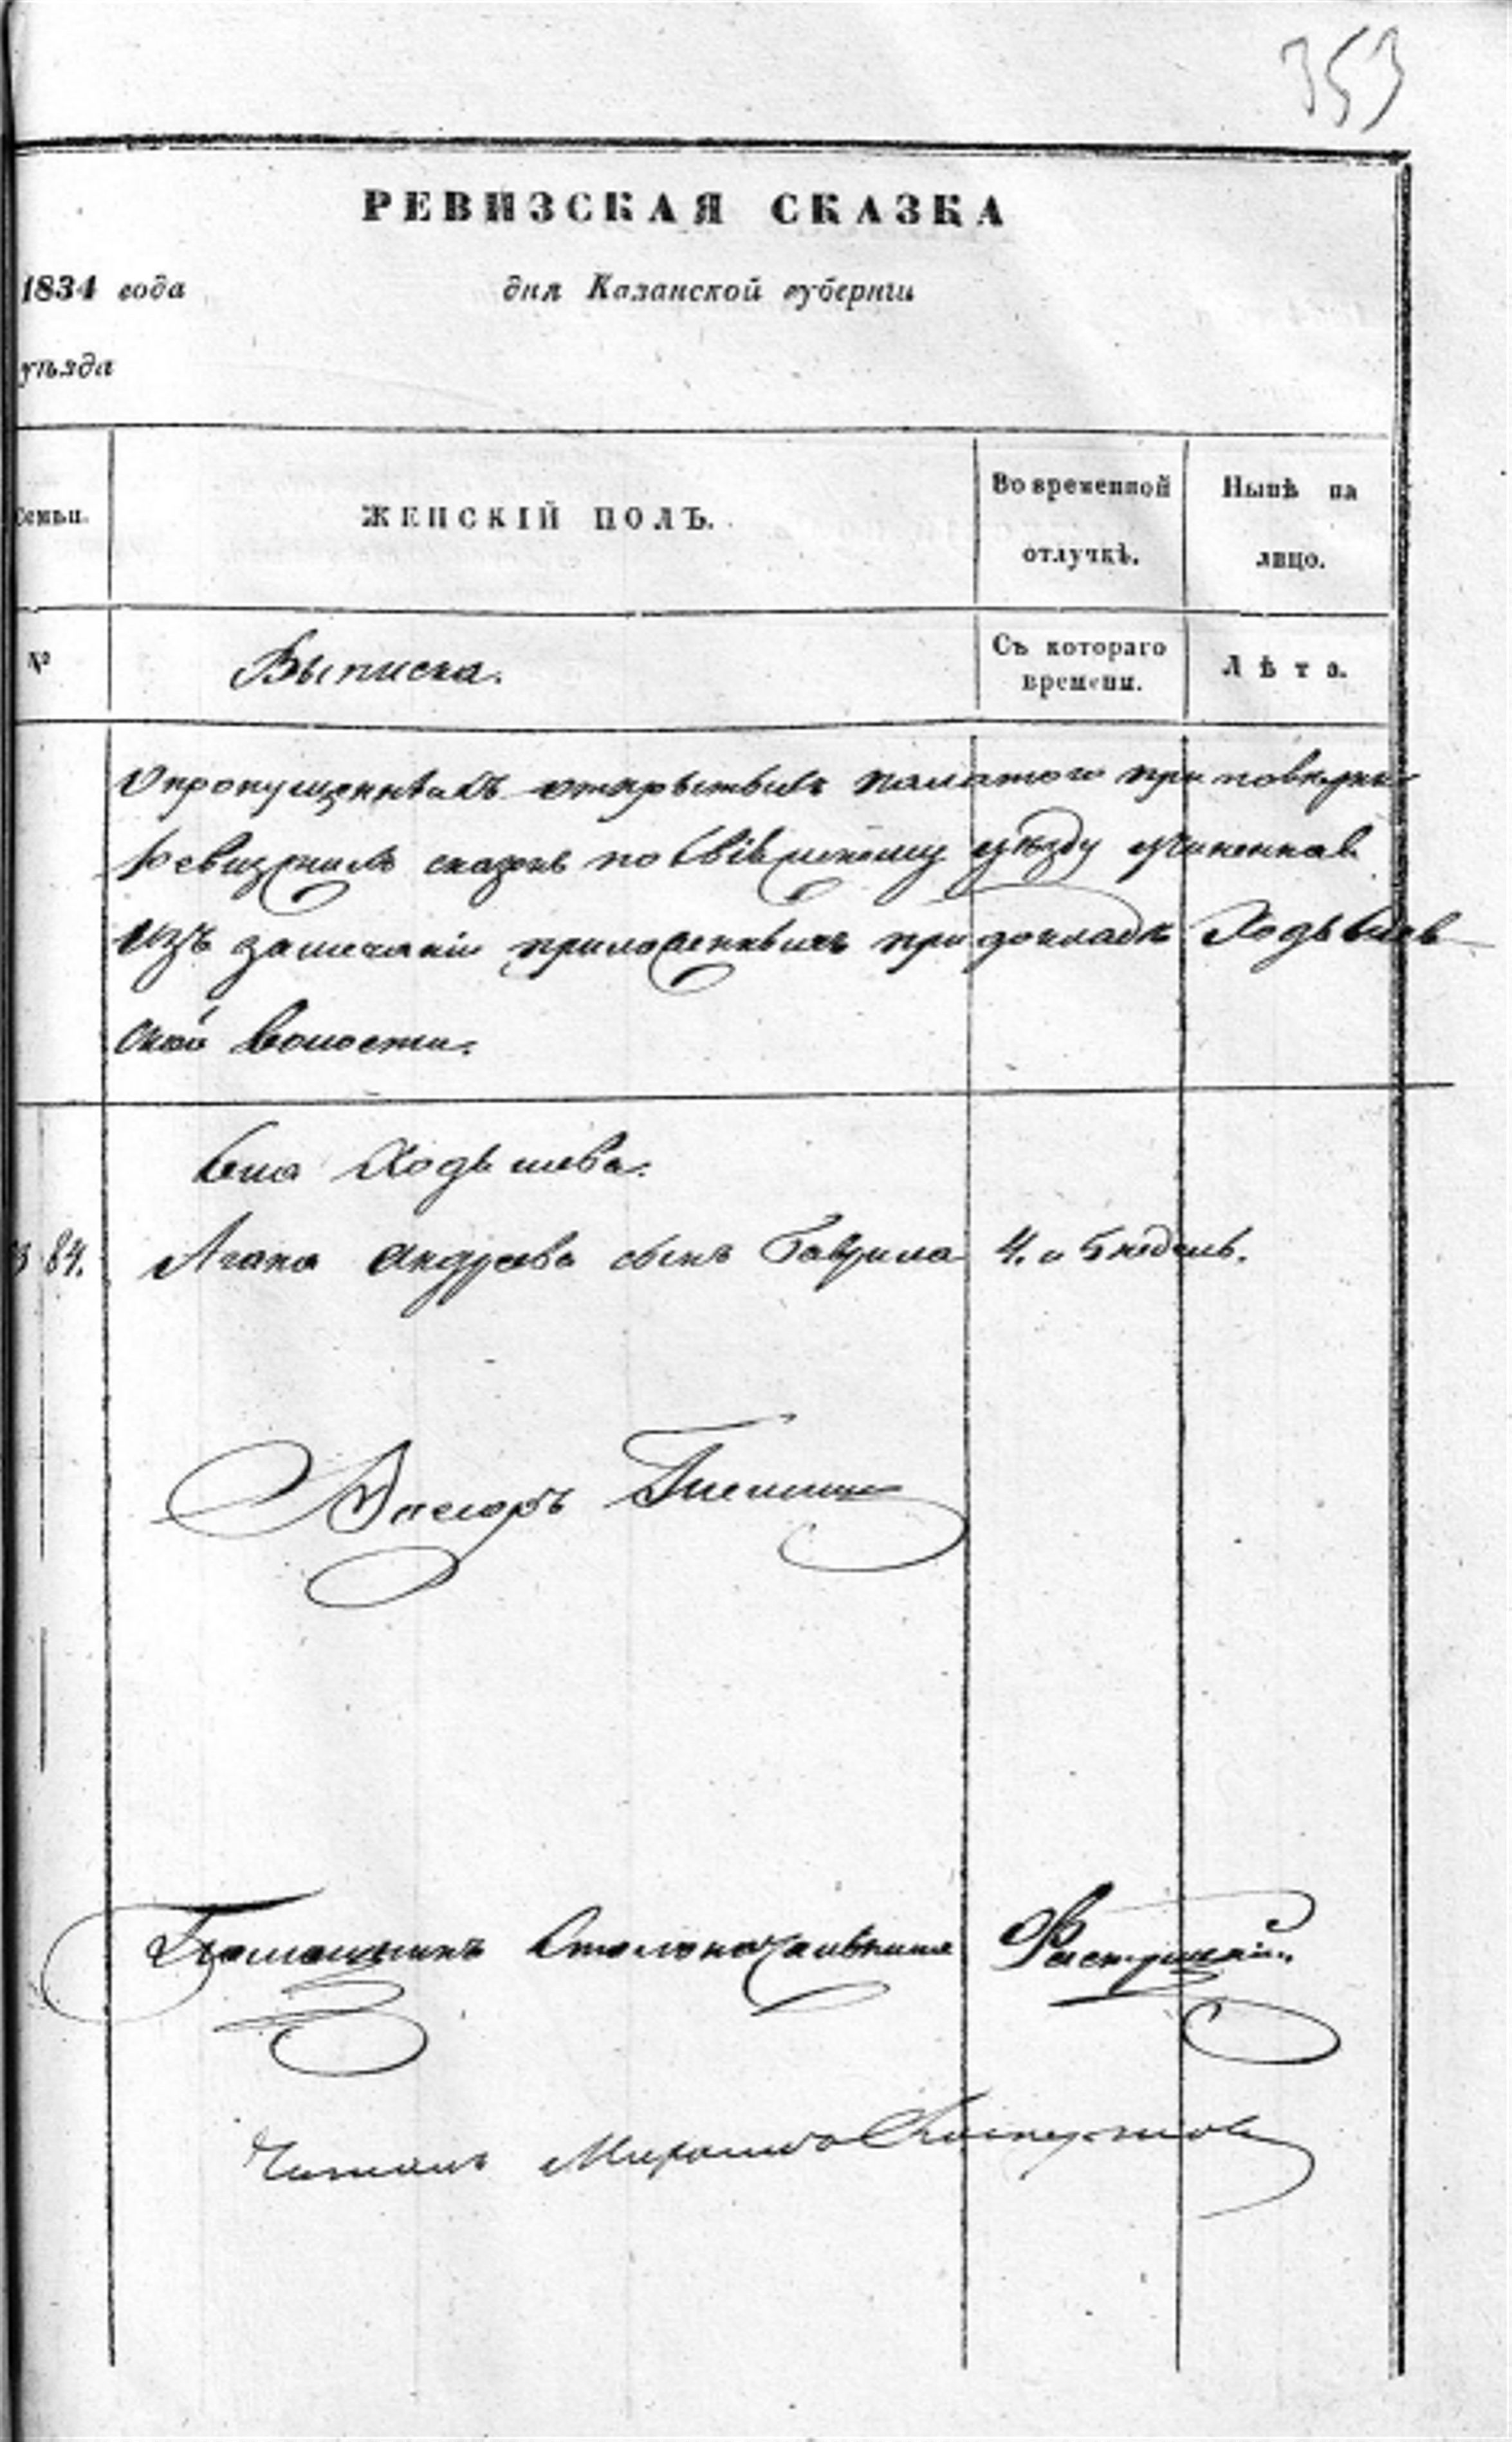 353
РЕВИЗСКАЯ СКАЗКА
1834 года дня Казанской губерніи
уѣзда
Семьи. ЖЕНСКІЙ ПОЛЪ. Во временной отлучкѣ. Нынѣ на лицо.
№ Выписка. Съ котораго времени. Лѣта.
О пропущенныхъ открытыхъ палатою при поверке
ревизскихъ сказокъ по Свіяжскому уѣзду учиненная
изъ замечаніи приложенныхъ при докладе Ходяшев
ской волости.
Села Ходяшева.
84. Андреева сынъ Гаврила 4. и 5 недель.
Помощникъ Столоначальника
Читалъ